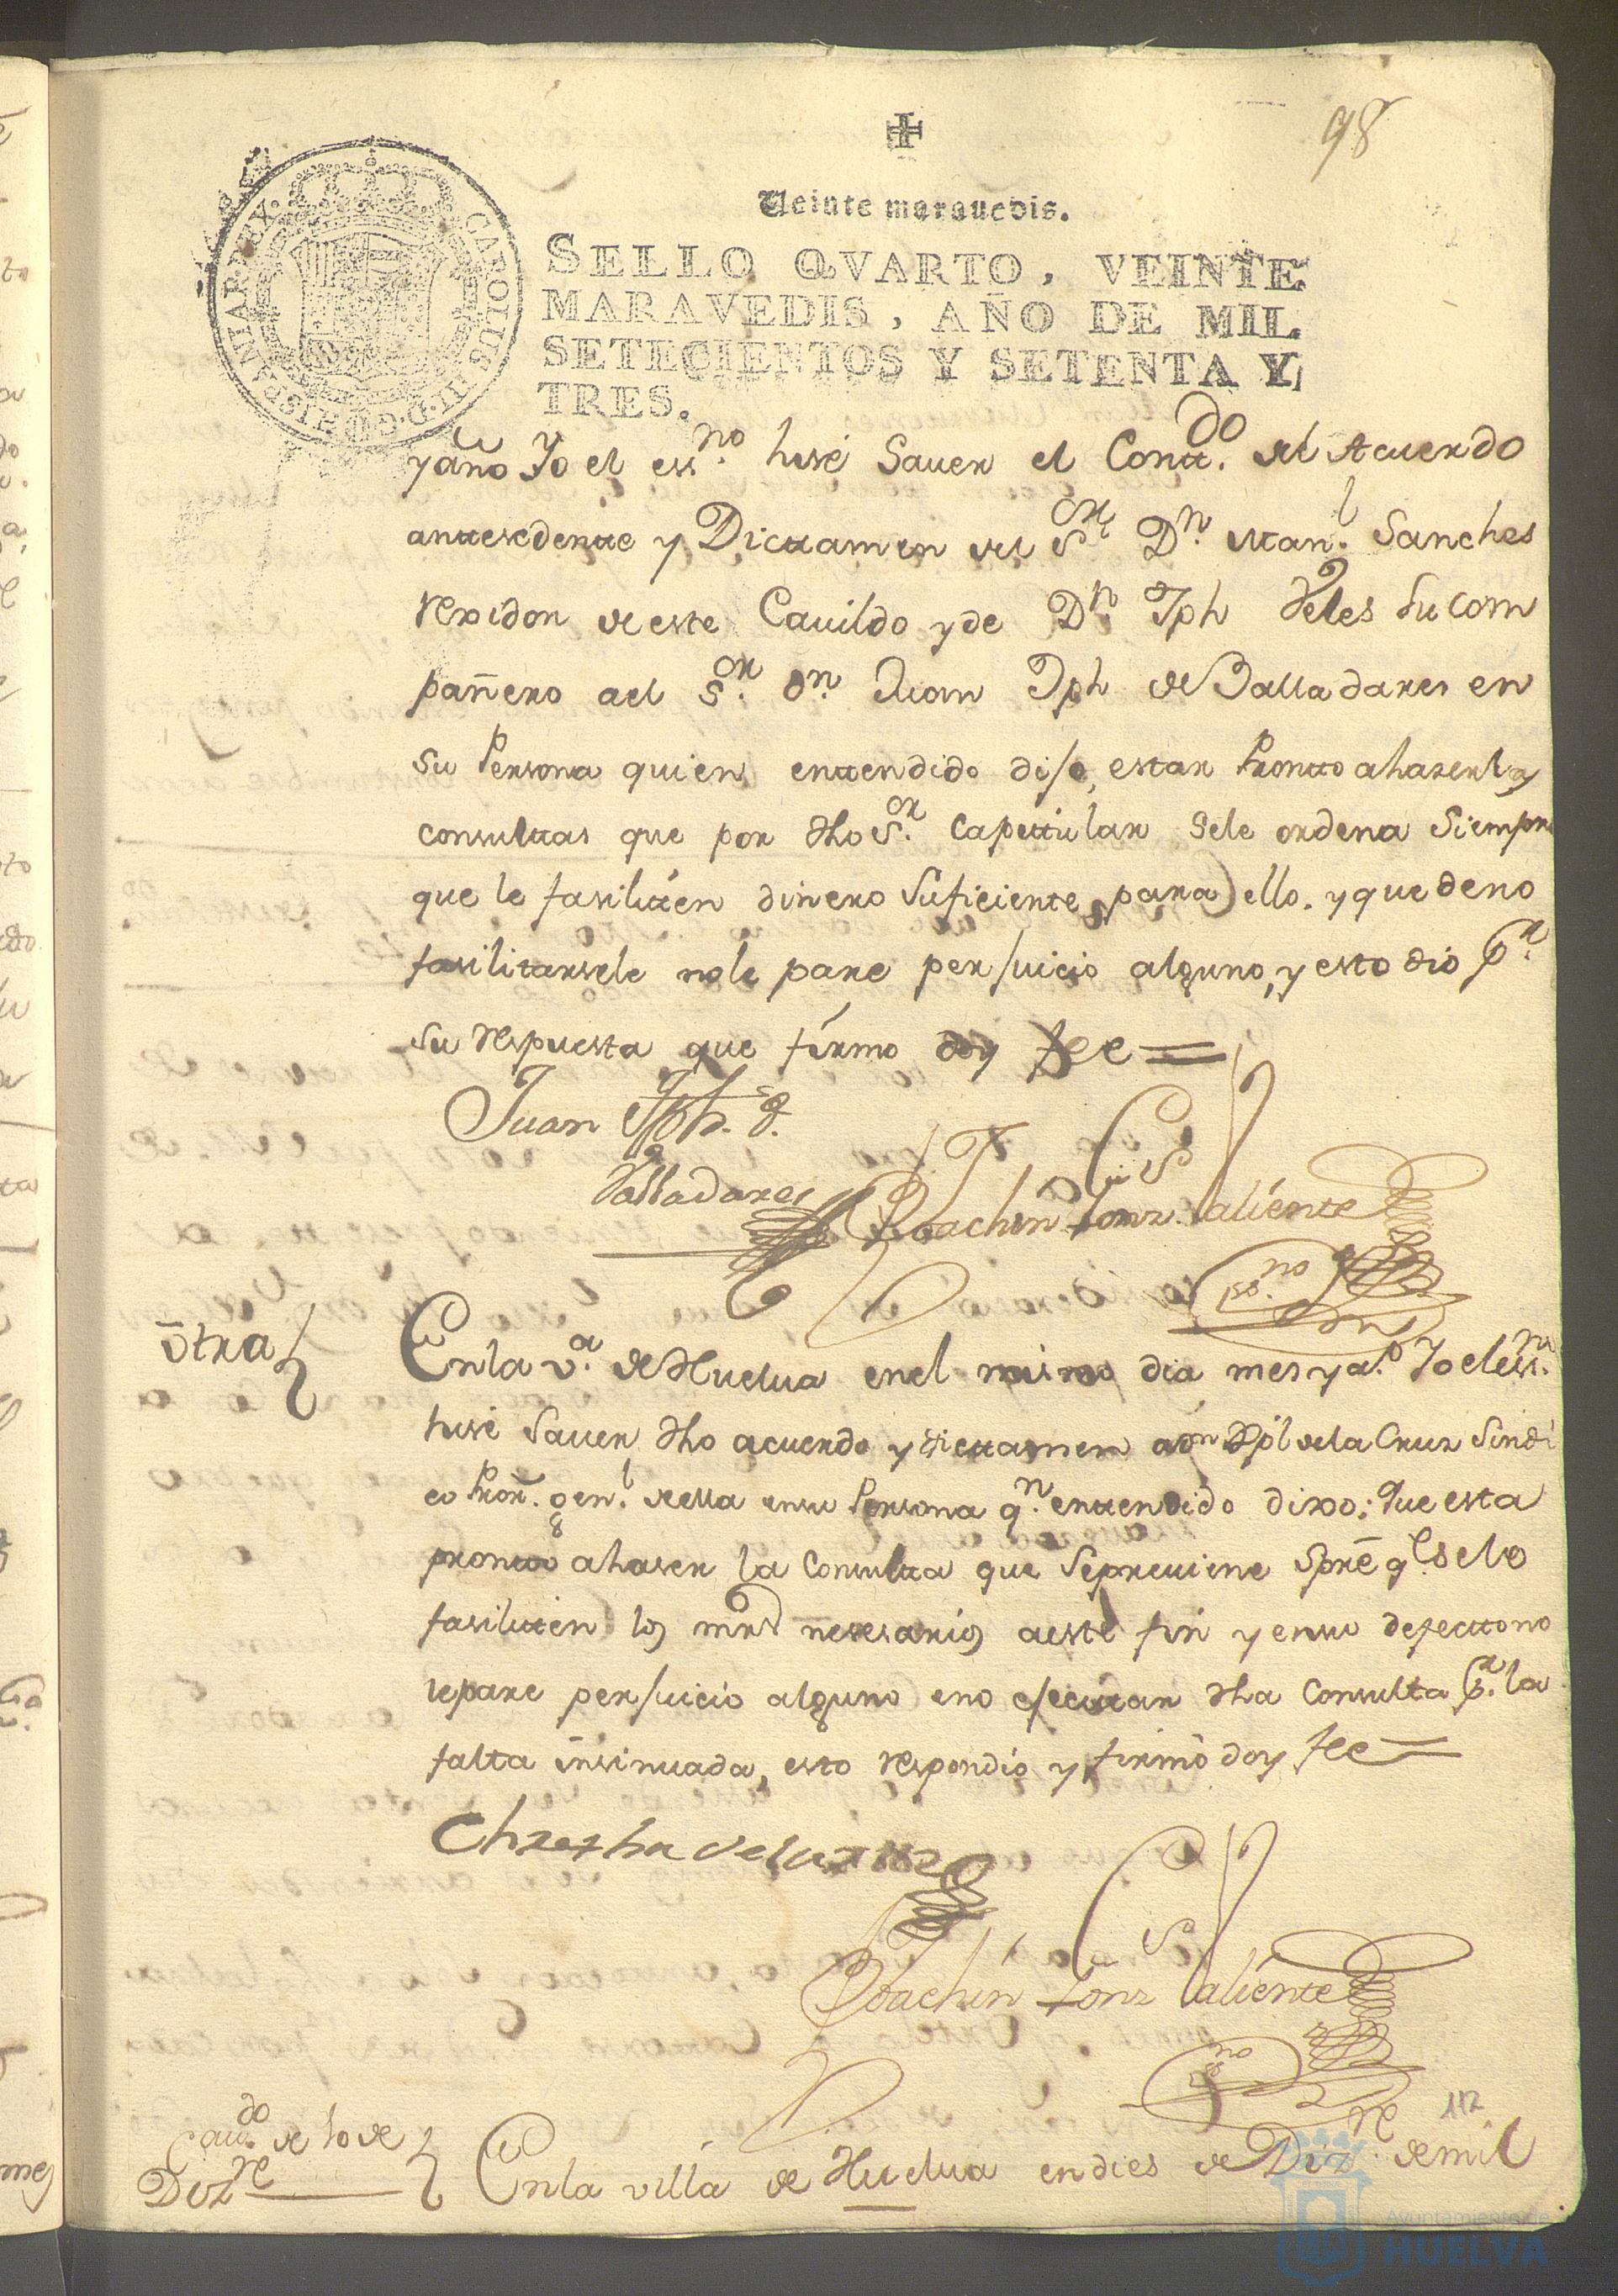 98
Veinte marauedis.
SELLO QVARTO, VEINTE
MARAVEDIS, AÑO DE MIL
SETECIENTOS Y SETENTA Y
TRES.
CAROLUS III D.G. HISPANIAR. REX.
y año Yo el essno. hisé Sauer el Contdo. del Acuerdo
antesedente y Dictamen del Sor. Dn. Manl. Sanches
rexidor de este Cauildo y de Dn. Jph Veles su com
pañero ael Sor. dn. Juan Jph de Balladares en
su Persona quien entendido dijo, estar Pronto a haser las
consultas que por dho Sor. capitular sele ordena Siempre
que le fasiliten dinero suficiente para ello. y que de no
fasilitarsele no le pare perjuicio alguno, y esto dio pr.
su respuesta que firmo doy fee =
Juan Jph. d.
Valladares
Joachin Gonz. Valiente
esno.
otra
En la va. de Huelua en el mismo dia mes y ao. Yo el essno.
hisé Sauer dho acuerdo y dictamen a dn Xpl de la Cruz Sindi
co Pror. genl. de ella en su Persona qn. entendido dixo; Que esta
pronto a haser la Consulta que se preuiene Spre qe. se le
fasiliten los mrs nesesarios a este fin y en su defecto no
le pare perjuicio alguno en o ejecutar dha Consulta pr. la
falta insinuada, esto respondio y firmó doy fee =
de la Cruz
Joachin Gonz Valiente
esno.
112
Caudo. de 10 de
Dizre
En la villa de Huelua en dies de Dizre. de mil
Ayuntamiento de
HUELVA